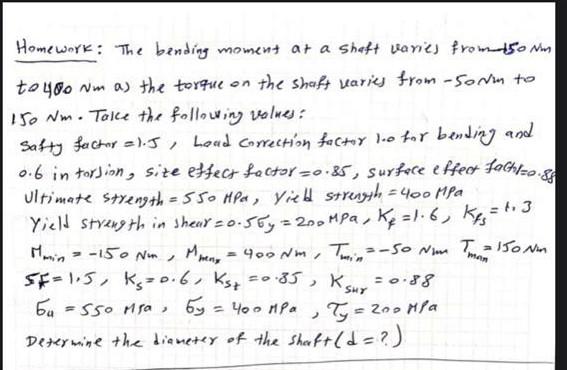 Homework: The bending moment at a shaft varies from -150 Nm
to 400 Nm as the torque on the shaft varies from -50Nm to
150 Nm. Take the following values:
Safty factor =1.5, Load Correction factor 1.0 for bending and
0.6 in torsion, size effect factor=0.85, surface effect factor=0.88
Ultimate strength = 550 MPa, Yield strength = 400 MPa
Yield strength in shear = 0.5σy = 200 MPa, Kf =1.6, Kfs = 1.3
Mmin = -150 Nm, Mmax = 400 Nm, Tmin = -50 Nm Tmax = 150 Nm
SF = 1.5, Ks = 0.6, Kst = 0.85, Ksur = 0.88
σu = 550 MPa, σy = 400 MPa, Ty = 200 MPa
Determine the diameter of the shaft (d = ?)